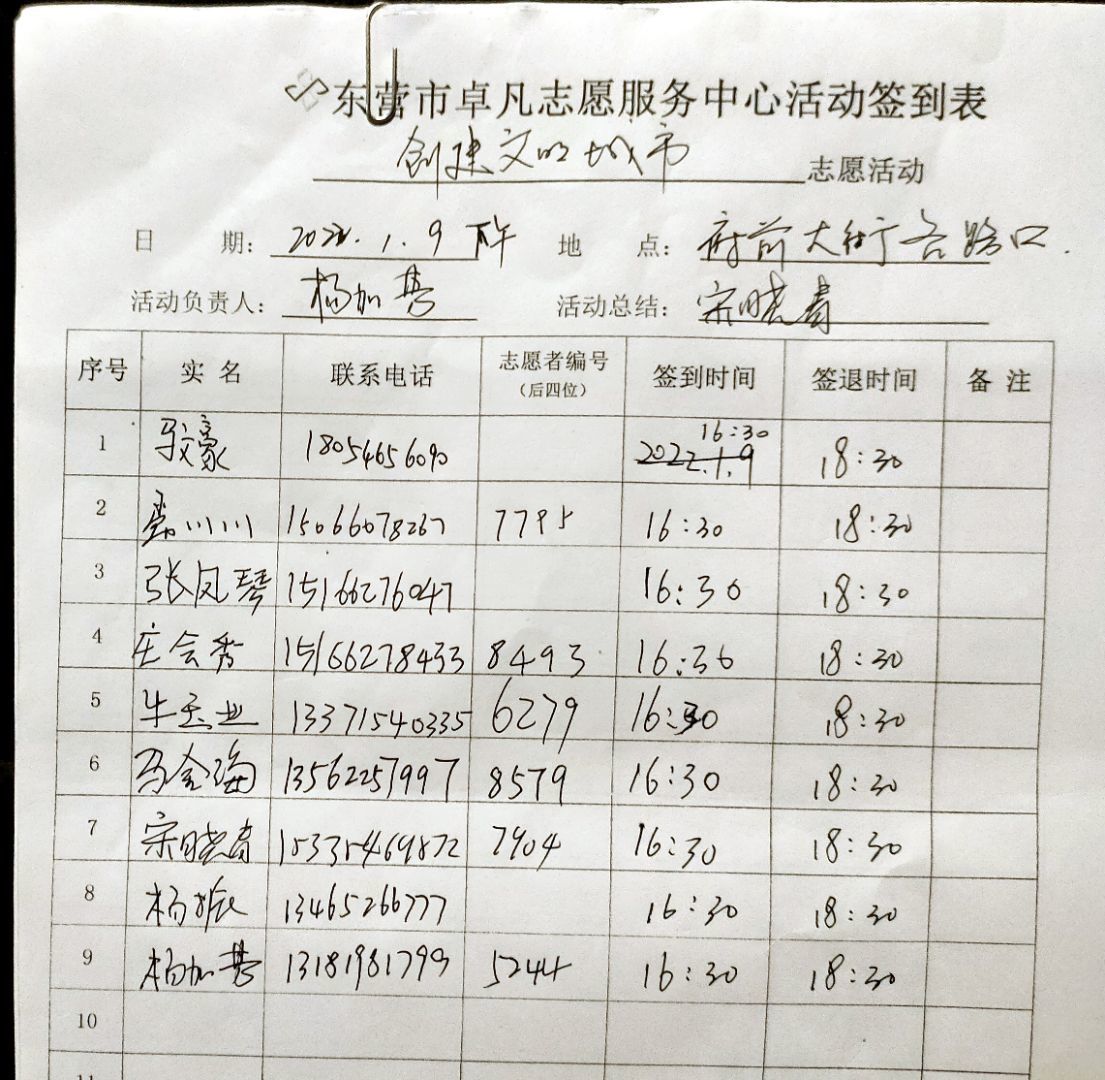 东营市卓凡志愿服务中心活动签到表
创建文明城市 志愿活动
日 期: 2022.1.9 下午 地 点: 府前大街各路口.
活动负责人: 杨加营 活动总结: 宋晓青
序号 实 名 联系电话 志愿者编号(后四位) 签到时间 签退时间 备 注
1 豪 18054656090 2022.1.9 16:30 18:30
2 川川 15066078267 7795 16:30 18:30
3 张凤琴 15166276047 16:30 18:30
4 庄会秀 15166278433 8493 16:30 18:30
5 牛玉业 13371540335 6279 16:30 18:30
6 马金海 13562257997 8579 16:30 18:30
7 宋晓青 15335469872 7904 16:30 18:30
8 杨振 13465266777 16:30 18:30
9 杨加营 13181981799 5244 16:30 18:30
10
11